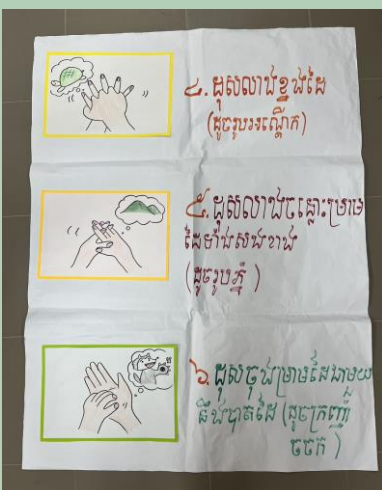 ៤. ដុសលាងខ្នងដៃ
(ដូចរូបអណ្ដើក)
៥. ដុសលាងចន្លោះម្រាម
ដៃទាំងសងខាង
(ដូចរូបភ្នំ)
៦. ដុសចុងម្រាមដៃជាមួយ
នឹងបាតដៃ (ដូចក្រញាំ
ចចក)